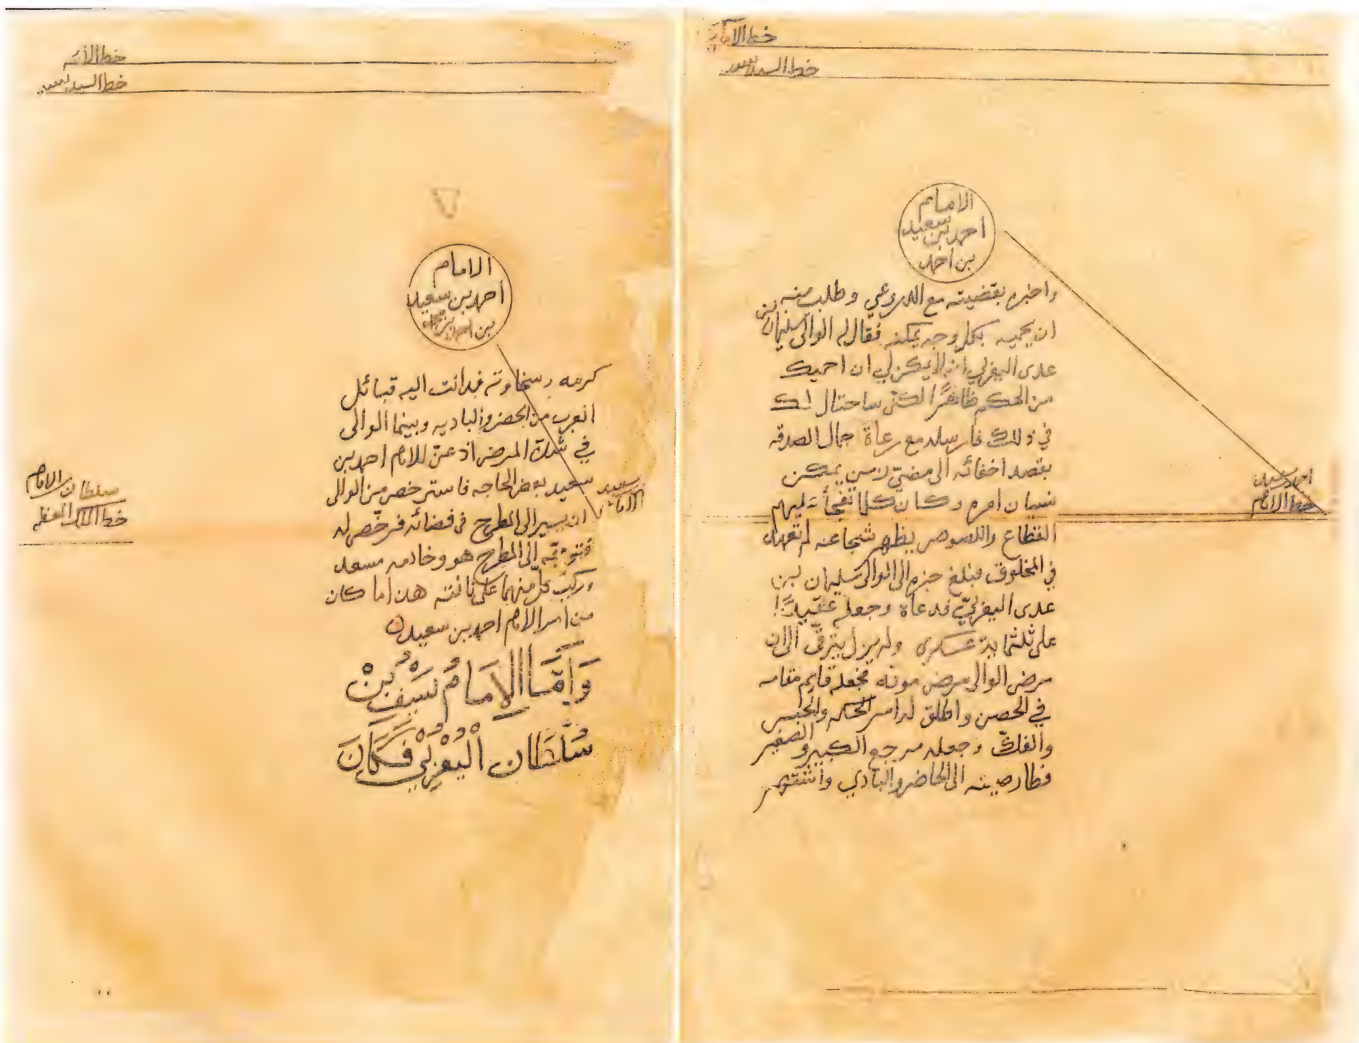 خط الأئمة
خط السيد
الامام
احمد بن سعيد
بن احمد
واخبره بقضيته مع الدروعي وطلب منه
ان يحميه بكل وجه يمكنه فقال له الوالى سليمان بن
عدى اليعربي انه لا يمكن لي ان احميك
من الحكم ظاهرًا لكنّ ساحتال لك
في ذلك فارسله مع رعاة جمال الصدقه
بقصد اخفائه الى مضيّ زمن يمكن
نسيان امره وكان كلما تفجأ عليهم
القطاع واللصوص يظهر شجاعه لم تعهد
في المخلوق فبلغ خبره الى الوالى سليمان بن
عدى اليعربيّ فدعاه وجعله عقيدًا
على ثلثماية عسكرى ولم يزل يترقّى الى ان
مرض الوالى مرض موته فجعله قايم مقامه
في الحصن واطلق له امر الحكم والحبس
والفكّ وجعله مرجع الكبير والصغير
فطار صيته الى الحاضر والبادي واشتهر
احمد بن سعيد
خط الامام
خط الأئمه
خط السيد
الامام
احمد بن سعيد
بن احمد بن
كرمه وسخاوته فدانت اليه قبائل
العرب من الحضر والباديه وبينما الوالى
في شدّة المرض اذ عنّ للامام احمد بن
سعيد بعض الحاجه فاسترخص من الوالى
ان يسير الى المطرح فى قضائه فرخّص له
فتوجّه الى المطرح هو وخادمه مسعد
وركب كلّ منهما على ناقته هذا ما كان
من امر الامام احمد بن سعيد
وَامَّا الْاِمَامُ سَيْفُ بْنُ
سُلْطَان الْيَعْرِبِي فَكَانَ
سعيد
الامام
سلطان الامام
خط الملك المعظم